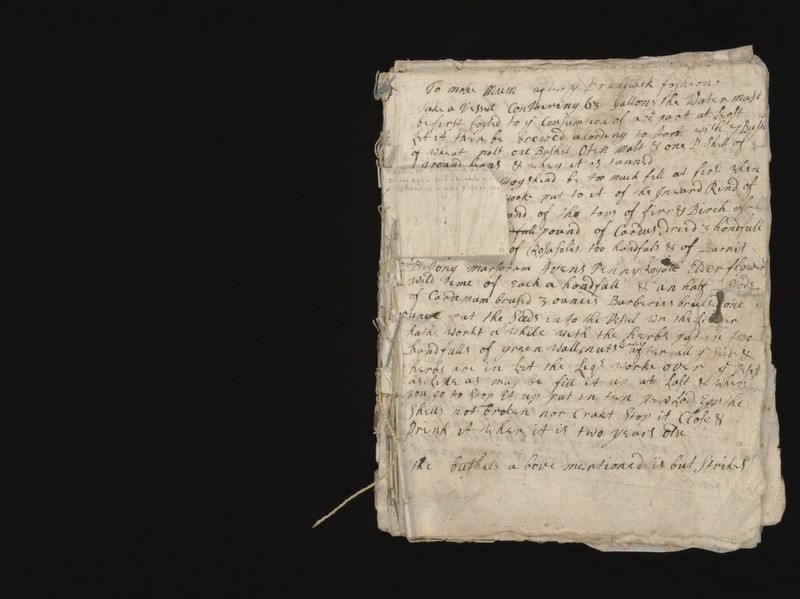 To make Mum after y Brunswick fashion
Take a Vessell Containeing 63 Gallons the Water must
be first boyled to y Consumtion of a part at Lost
Let it then be brewed acording to Port with 7 Bush
of wheat malt one Bushel Oten malt & one P shell of
Ground beans & when it is tunned
hogshead be too much fill at first when
worke put to it of the Inward Rind of
and of the tops of firr & Birch of
pound of Cardus dried 3 handfull
of Rosasolis too handfuls & of Burnit
Bettony marjoram Avens Pennyroyall Elder flowers
wild time of each a handfull & an half Seeds
of Cardemum brused 3 ounces Barberies brused one
ounce put the Seeds into the Vessel wn the
hath workt a while with the herbs put in two
handfulls of green wallnuts after all y Seeds &
herbs are in Let the Liqr worke over y Vessel
as Litle as may be fill it up at Last & when
you go to stop it up put in ten New Laid Eggs the
Shells not broken nor Crakt Stop it Close &
Drink it when it is two years olde
the bushels above mentioned is but Strikes